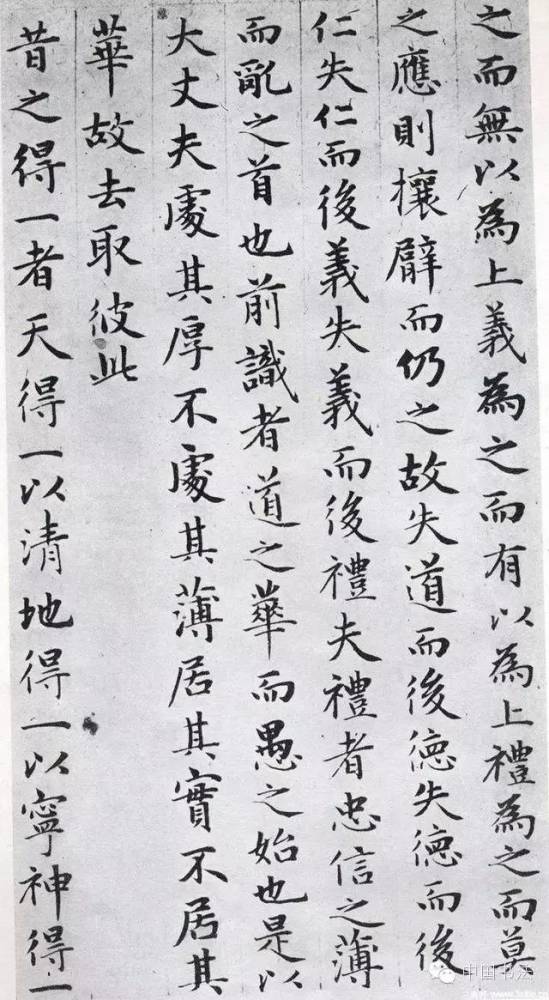 之而無以為上義為之而有以為上禮為之而莫
之應則攘臂而仍之故失道而後德失德而後
仁失仁而後義失義而後禮夫禮者忠信之薄
而亂之首也前識者道之華而愚之始也是以
大丈夫處其厚不處其薄居其實不居其
華故去取彼此
昔之得一者天得一以清地得一以寧神得一
中国书法